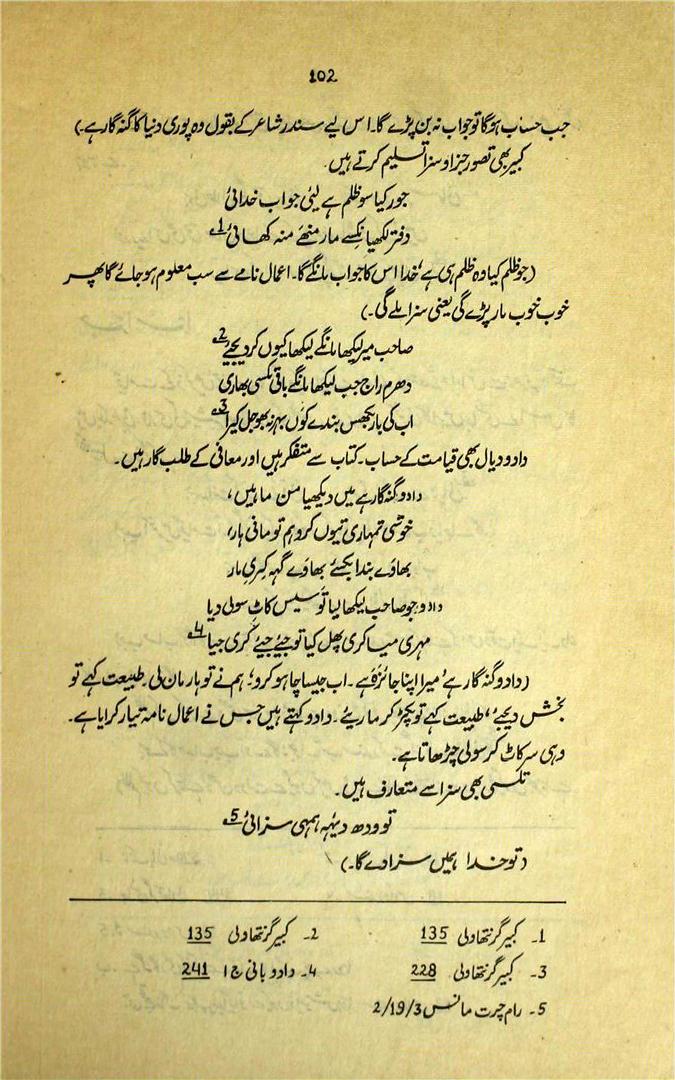 102
جب حساب ہوگا تو جواب نہ بن پڑے گا۔ اس لیے سندر شاعر کے بقول وہ پوری دنیا کا گنہ گار ہے۔)
کبیر بھی تصور جزا و سزا تسلیم کرتے ہیں۔
جور کیا سو ظلم ہے لیئی جواب خدائی
دفتر لکھیا نکسے مار منھے منہ کھائی 1؎
(جو ظلم کیا وہ ظلم ہی ہے، خدا اس کا جواب مانگے گا۔ اعمال نامے سے سب معلوم ہو جائے گا پھر
خوب خوب مار پڑے گی یعنی سزا ملے گی۔)
صاحب میر لیکھا مانگے لیکھا کیوں کر دیجئے 2؎
دھرم راج جب لیکھا مانگے باقی نکسی بھاری
اب کی بار بکھس بندے کوں بہر نہ بھوجل کیرا 3؎
دادو دیال بھی قیامت کے حساب۔ کتاب سے متفکر ہیں اور معافی کے طلب گار ہیں۔
دادو گنہ گار ہے میں دیکھیا من ماہیں،
خوشی تمہاری تیوں کرو ہم تو مانی ہار،
بھاوے بندا بکسئے بھاوے گہہ کری مار
دادو جو صاحب لیکھا لیا تو سیس کاٹ سولی دیا
مہری میا کری پھل کیا تو جیئے جیئے کری جیا 4؎
(دادو گنہ گار ہے، میرا اپنا جائزہ ہے۔ اب جیسا چاہو کرو؛ ہم نے تو ہار مان لی۔ طبیعت کہے تو
بخش دیجئے، طبیعت کہے تو پکڑ کر ماریئے۔ دادو کہتے ہیں جس نے اعمال نامہ تیار کرایا ہے۔
وہی سر کاٹ کر سولی چڑھاتا ہے۔
تلسی بھی سزا سے متعارف ہیں۔
تو ودھ دیہہ ہمہی سزائی 5؎
(تو خدا ہمیں سزا دے گا۔)
1۔ کبیر گرنتھاولی 135
2۔ کبیر گرنتھاولی 135
3۔ کبیر گرنتھاولی 228
4۔ دادو بانی ج ا 241
5۔ رام چرت مانس 2/19/3